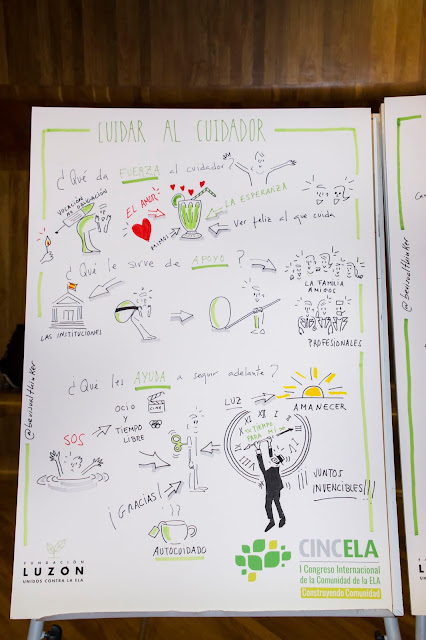 CUIDAR AL CUIDADOR
¿Qué da FUERZA al cuidador?
VOCACIÓN vs OBLIGACIÓN
EL AMOR
LA ESPERANZA
MIMOS
Ver feliz al que cuida
¿Qué le sirve de APOYO?
LAS INSTITUCIONES
LA FAMILIA
AMIGOS
PROFESIONALES
¿Qué les AYUDA a seguir adelante?
SOS
OCIO
Y
TIEMPO
LIBRE
CINE
LUZ
AMANECER
TIEMPO
PARA MI
¡GRACIAS!
¡¡¡JUNTOS
INVENCIBLES!!!
AUTOCUIDADO
@beusualthinker
@beusualthinker
FUNDACIÓN
LUZÓN
UNIDOS CONTRA LA ELA
CINCELA
I Congreso Internacional
de la Comunidad de la ELA
Construyendo Comunidad